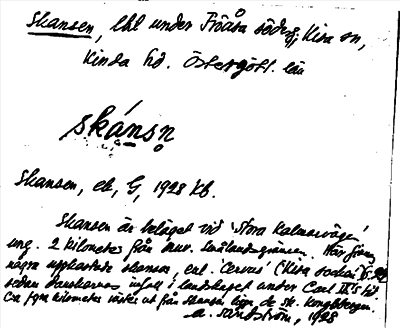 Skansen, lhl under Fröåsa södergg, Kisa sn,
Kinda hd. Östergötl. län
skánsn̥
Skansen, ek, G, 1928 Kb.
Skansen är beläget vid 'Stora Kalmarvägen'
ung. 2 kilometer från nuv. smålandsgränsen. Här finnas
några uppkastade skansar, enl. 'Cervus' (Kisa socken)
sedan danskarnas infall i landskapet under Carl IX's tid.
Ca fyra kilometer väster ut från skansen ligga de sk. Kungsbergen.
A. Sandström, 1928